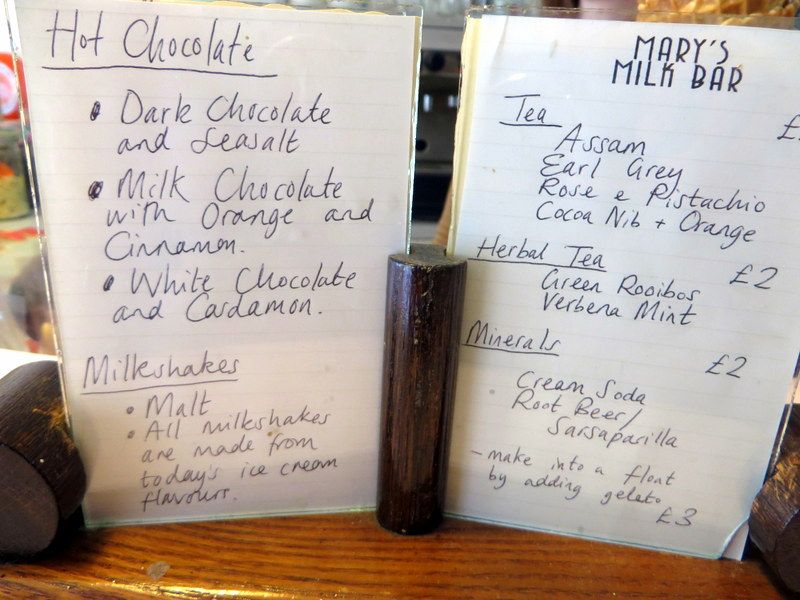 Hot Chocolate
• Dark Chocolate
and Seasalt
• Milk Chocolate
with Orange and
Cinnamon.
• White Chocolate
and Cardamon.
Milkshakes
• Malt
• All milkshakes
are made from
today's ice cream
flavours.
MARY'S
MILK BAR
Tea
£
Assam
Earl Grey
Rose e Pistachio
Cocoa Nib + Orange
Herbal Tea £2
Green Rooibos
Verbena Mint
Minerals £2
Cream Soda
Root Beer/
Sarsaparilla
- make into a float
by adding gelato
£3